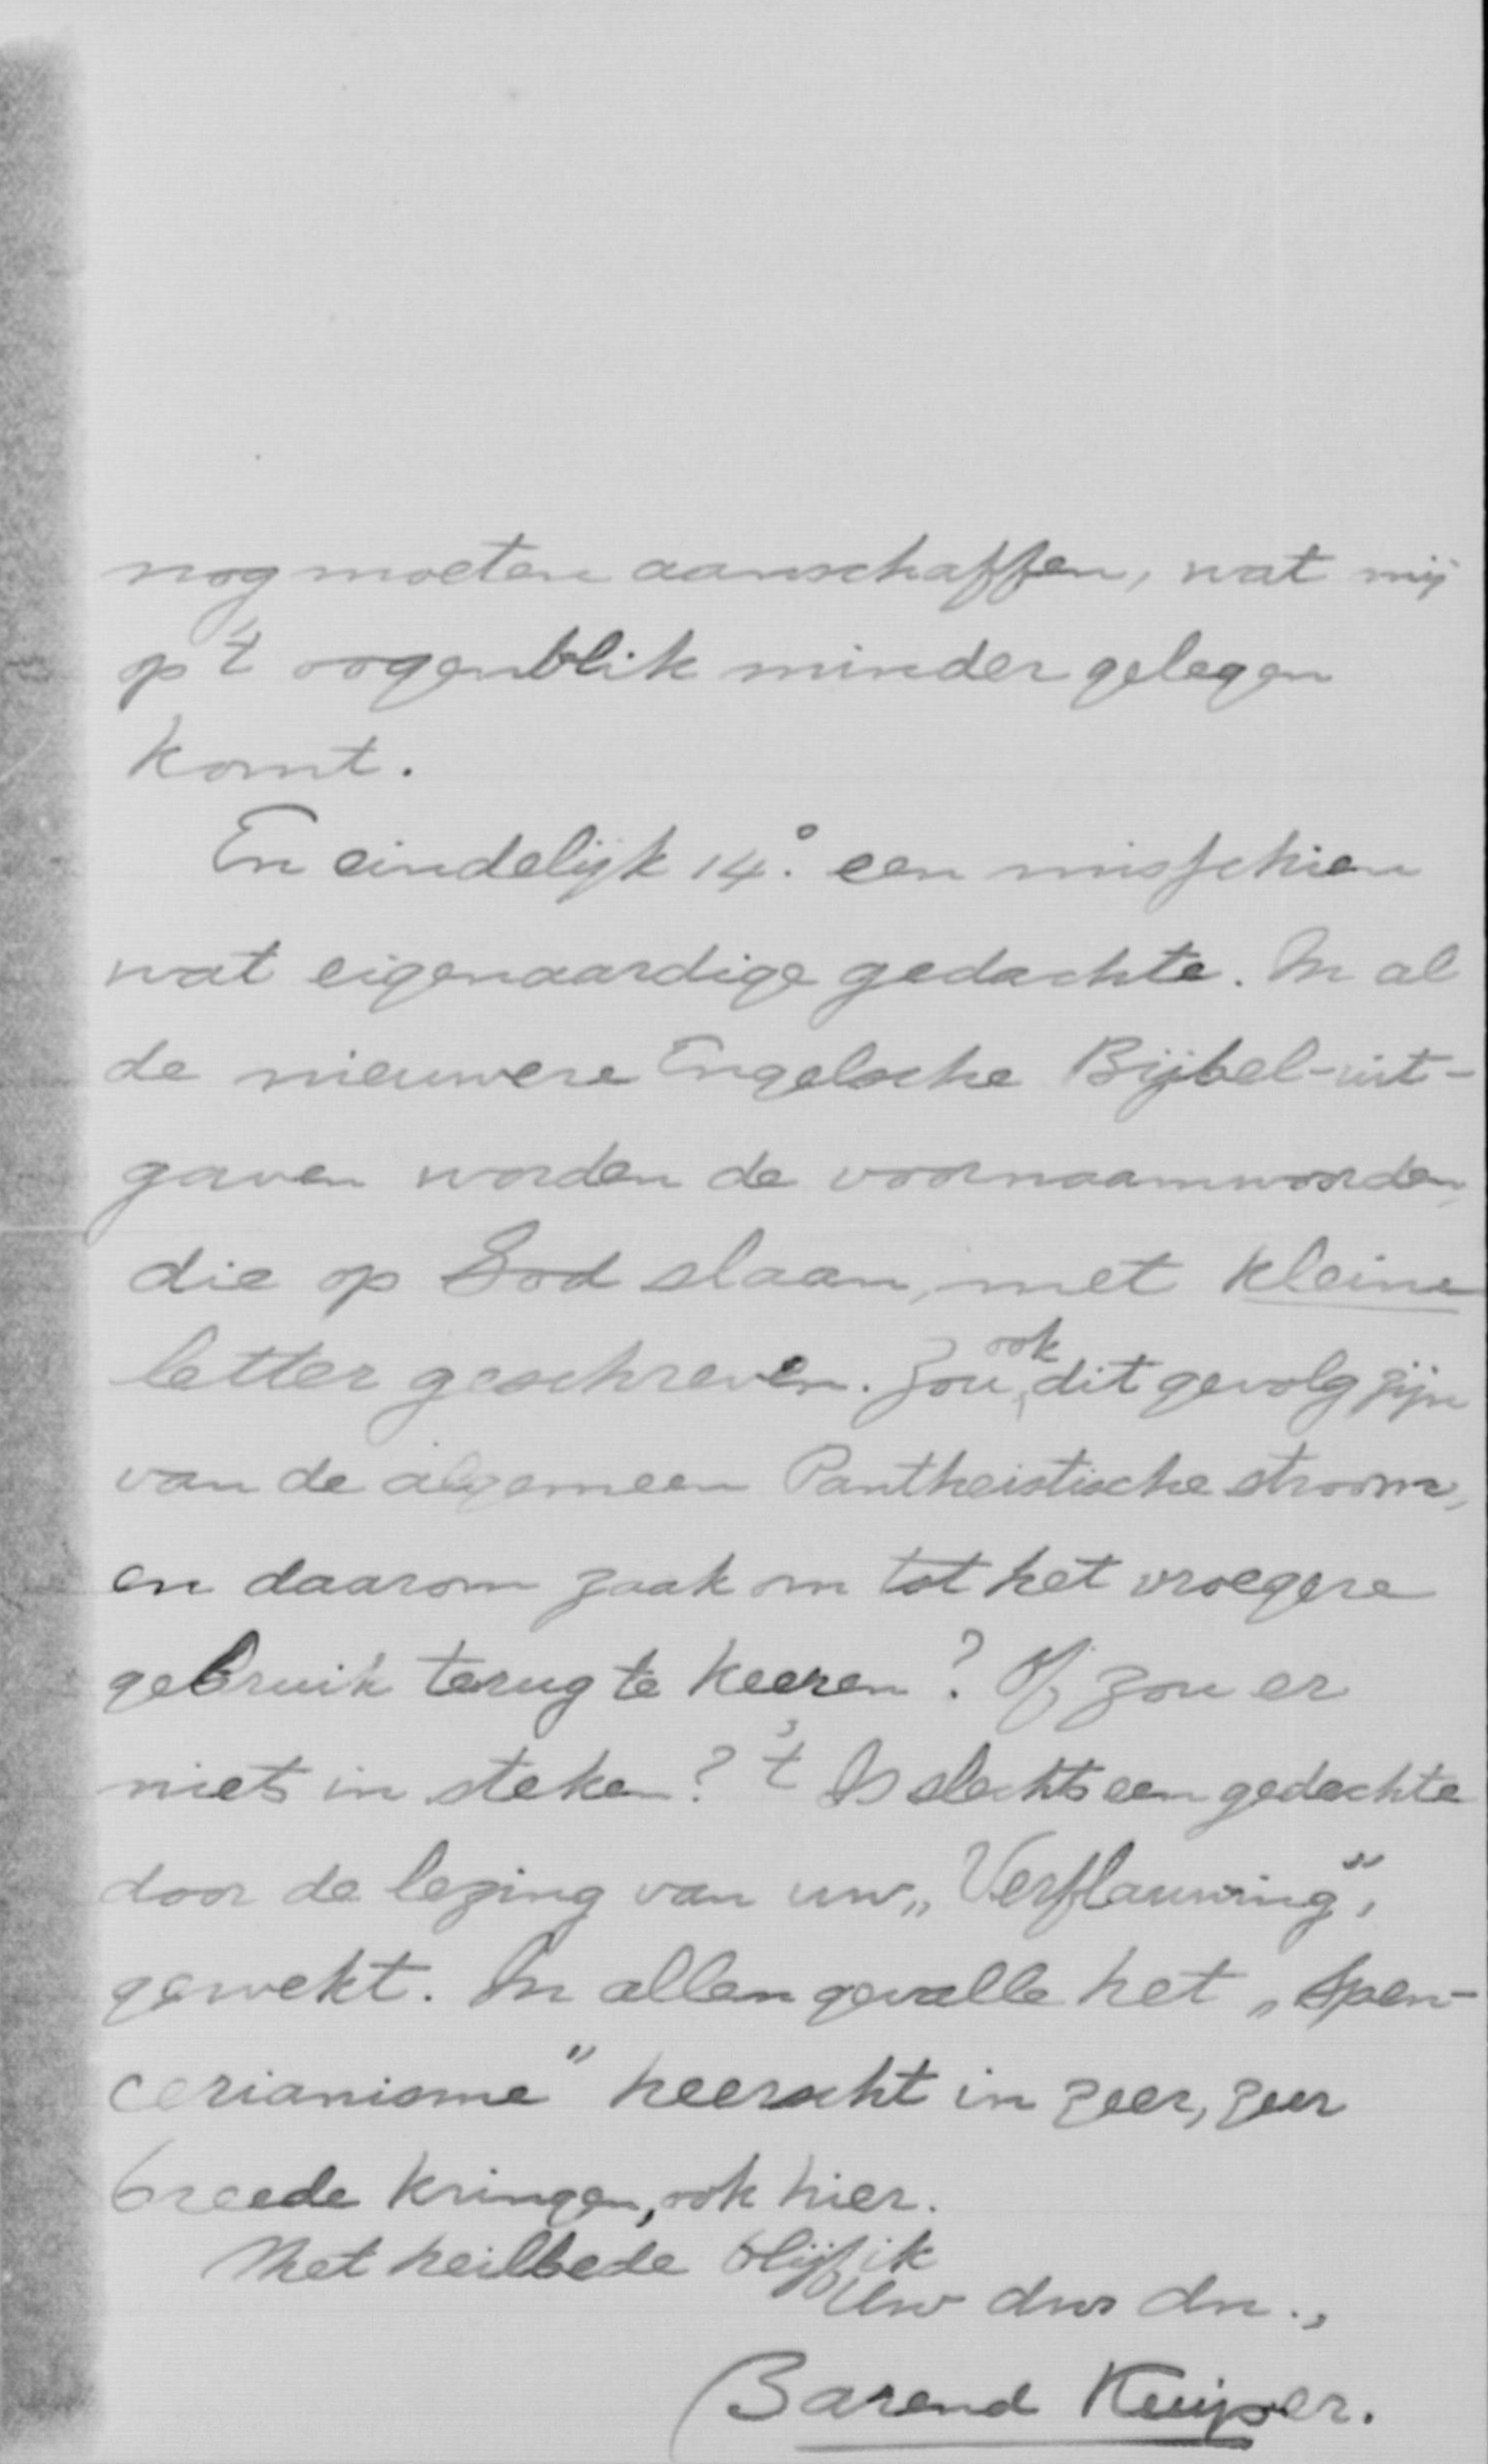 nog moeten aanschaffen, wat mij
op 't oogenblik minder gelegen
komt.
En eindelijk 14.° een misschien
wat eigenaardige gedachte. In al
de nieuwere Engelsche Bijbel-uit-
gaven worden de voornaamwoorden,
die op God slaan, met kleine
letter geschreven. Zou ook dit gevolg zijn
van de algemeen Pantheistische stroom,
en daarom zaak om tot het vroegere
gebruik terug te keeren? Of zou er
niets in steken? 't Is slechts een gedachte
door de lezing van uw „Verflauwing",
gewekt. In allen gevalle het „Spen-
cerianisme" heerscht in zeer, zeer
breede kringen, ook hier.
Met heilbede blijf ik
Uw dws dn.,
Barend Kuiper.